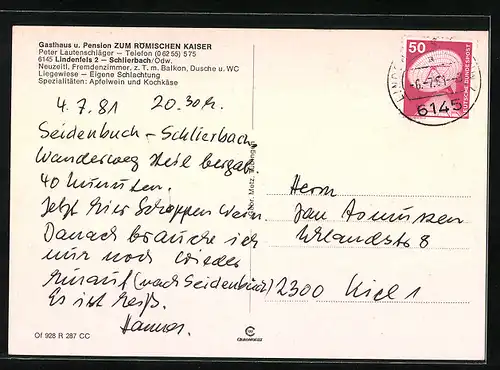 Gasthaus u. Pension ZUM RÖMISCHEN KAISER
Peter Lautenschläger – Telefon (0 62 55) 575
6145 Lindenfels 2 – Schlierbach/Odw.
Neuzeitl. Fremdenzimmer, z. T. m. Balkon, Dusche u. WC
Liegewiese – Eigene Schlachtung
Spezialitäten: Apfelwein und Kochkäse
4.7.81 20.30h.
Seidenbuch – Schlierbach
Wanderweg steil bergab
40 Minuten.
Jetzt hier Schoppen Wein.
Danach brauche ich
nur noch wieder
hinauf (nach Seidenbuch)
Es ist heiß.
Hannes.
Herrn
Jan Asmussen
Uhlandstr 8
2300 Kiel 1
50
DEUTSCHE BUNDESPOST
6145
Of 928 R 287 CC